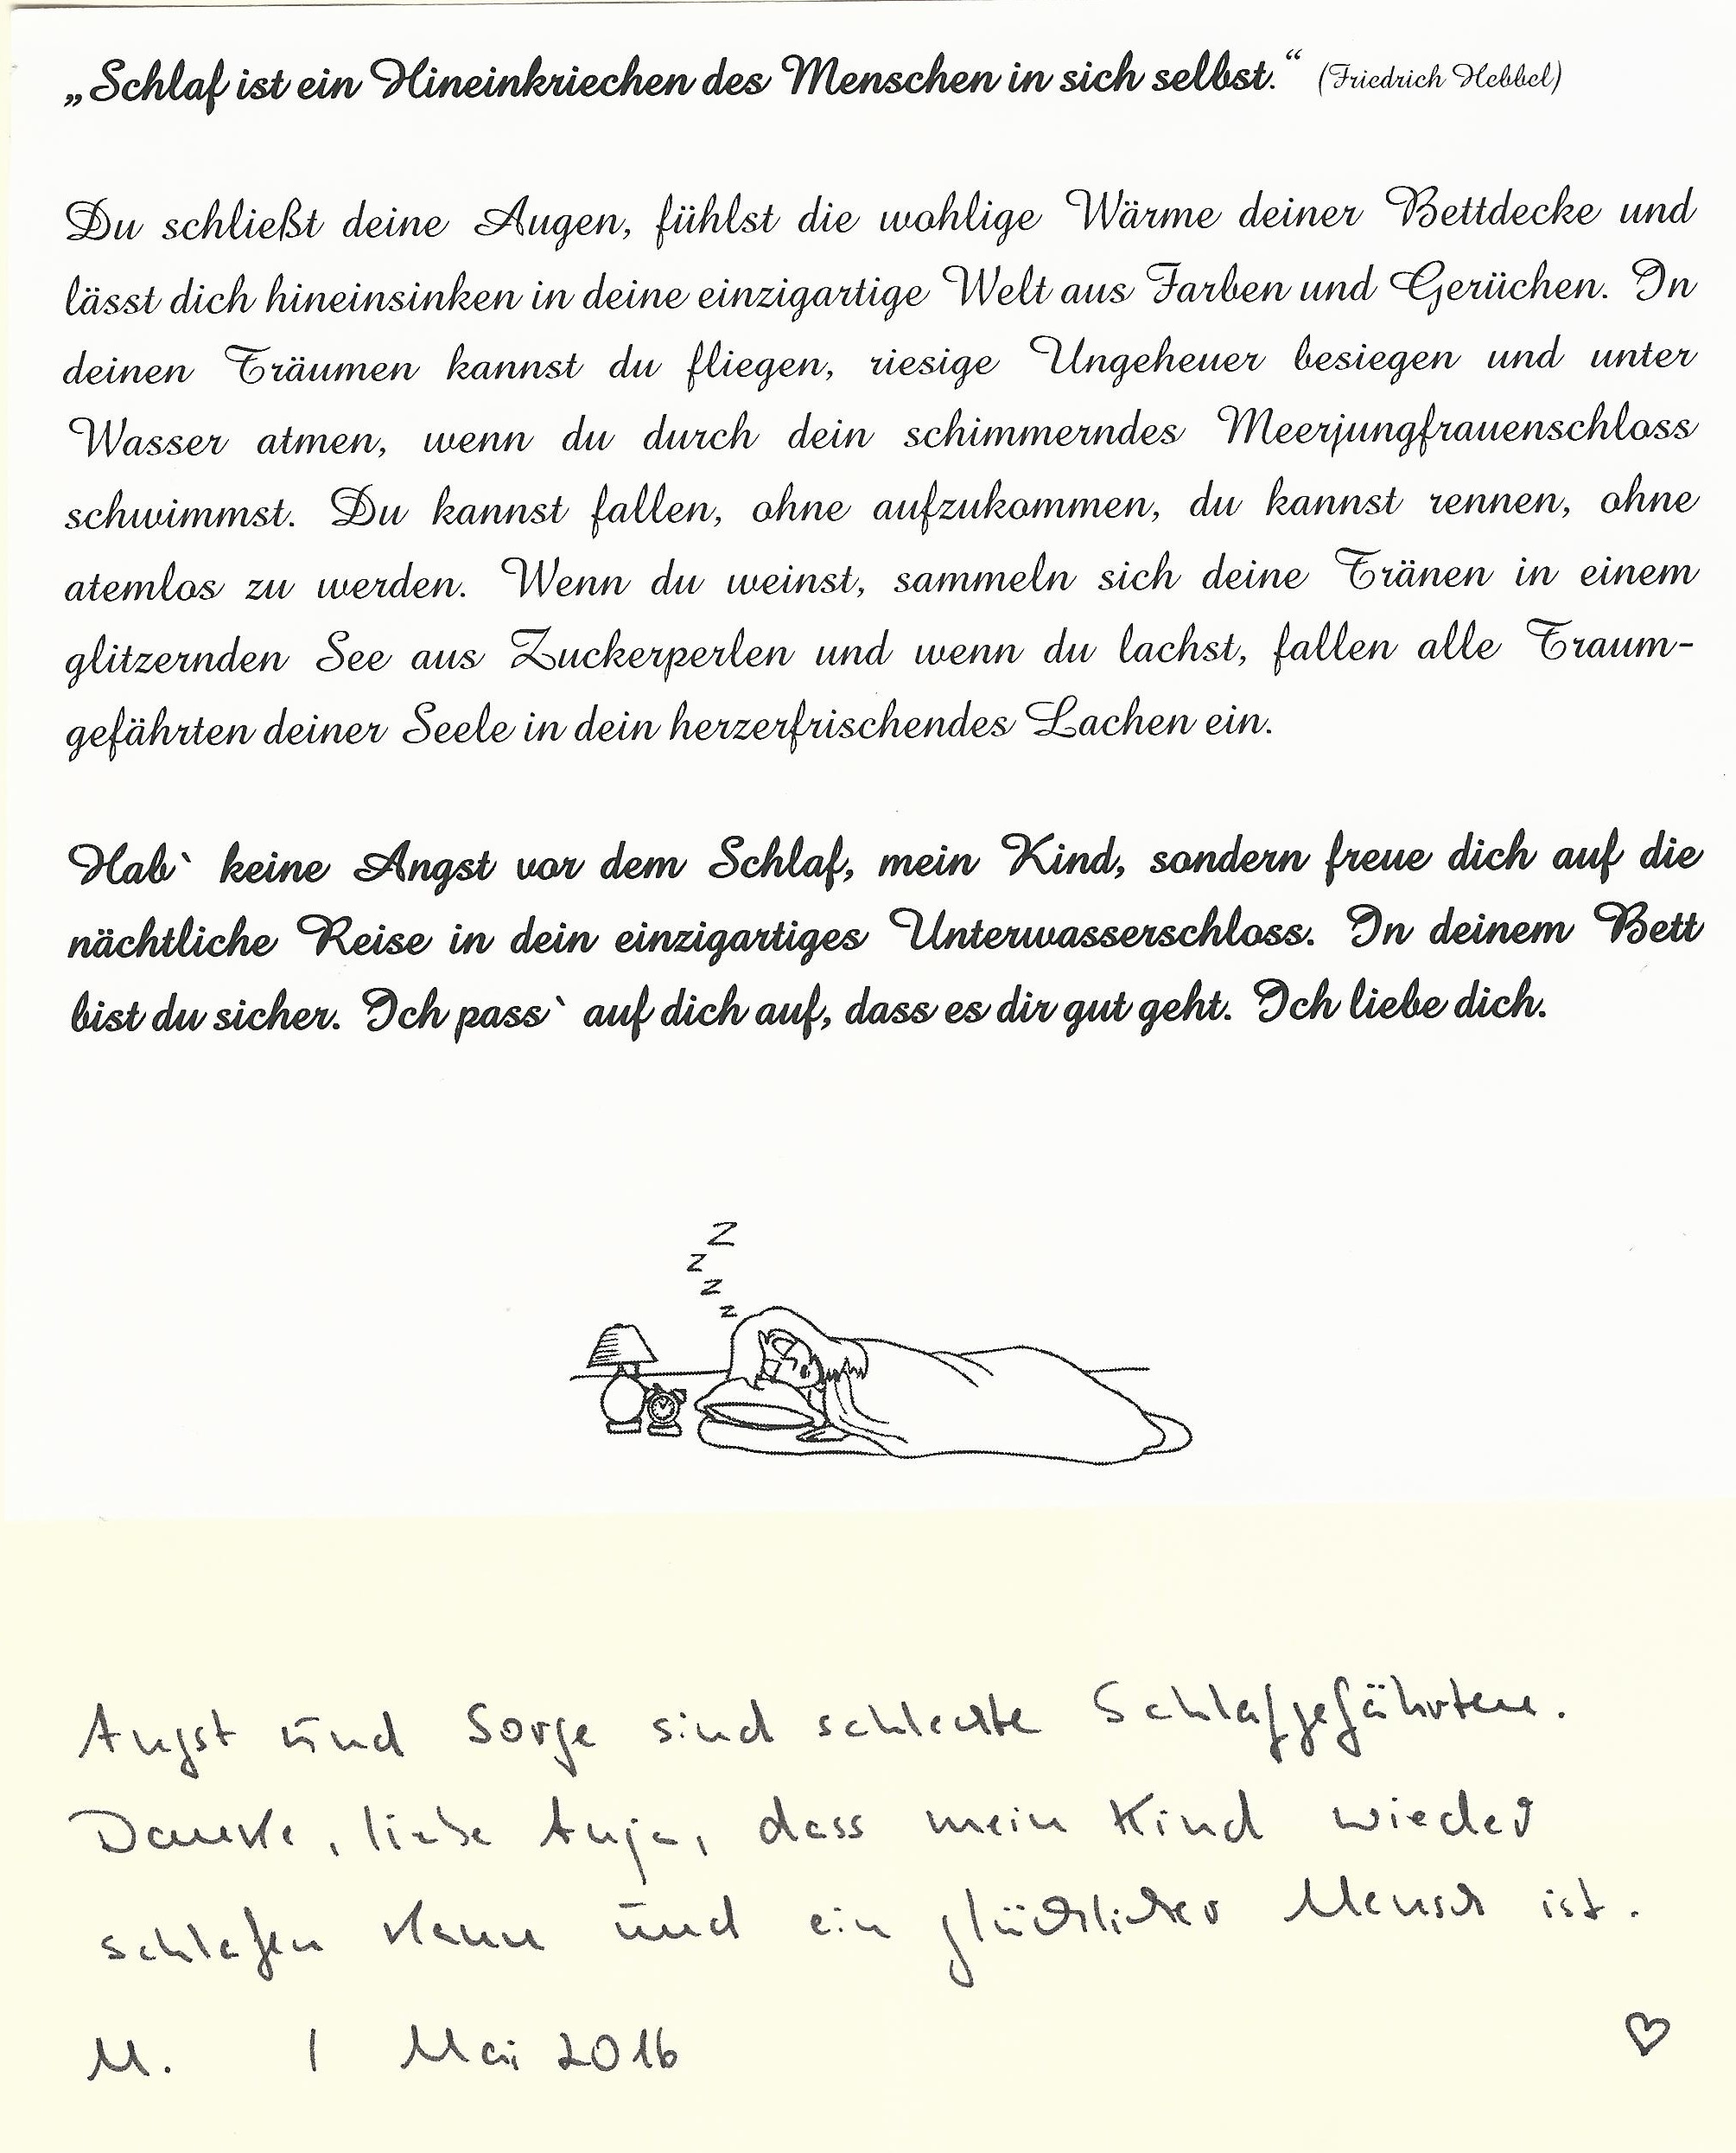 „Schlaf ist ein Hineinkriechen des Menschen in sich selbst.“ (Friedrich Hebbel)
Du schließt deine Augen, fühlst die wohlige Wärme deiner Bettdecke und
lässt dich hineinsinken in deine einzigartige Welt aus Farben und Gerüchen. In
deinen Träumen kannst du fliegen, riesige Ungeheuer besiegen und unter
Wasser atmen, wenn du durch dein schimmerndes Meerjungfrauenschloss
schwimmst. Du kannst fallen, ohne aufzukommen, du kannst rennen, ohne
atemlos zu werden. Wenn du weinst, sammeln sich deine Tränen in einem
glitzernden See aus Zuckerperlen und wenn du lachst, fallen alle Traum-
gefährten deiner Seele in dein herzerfrischendes Lachen ein.
Hab` keine Angst vor dem Schlaf, mein Kind, sondern freue dich auf die
nächtliche Reise in dein einzigartiges Unterwasserschloss. In deinem Bett
bist du sicher. Ich pass` auf dich auf, dass es dir gut geht. Ich liebe dich.
Z
z
z
z
Angst und Sorge sind schlechte Schlafgefährten.
Danke, liebe Anja, dass mein Kind wieder
schlafen kann und ein glücklicher Mensch ist.
M. / Mai 2016 ♡